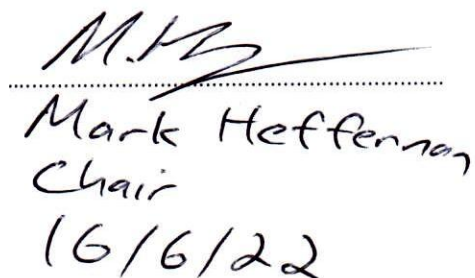 M.H
Mark Heffernan
Chair
16/6/22